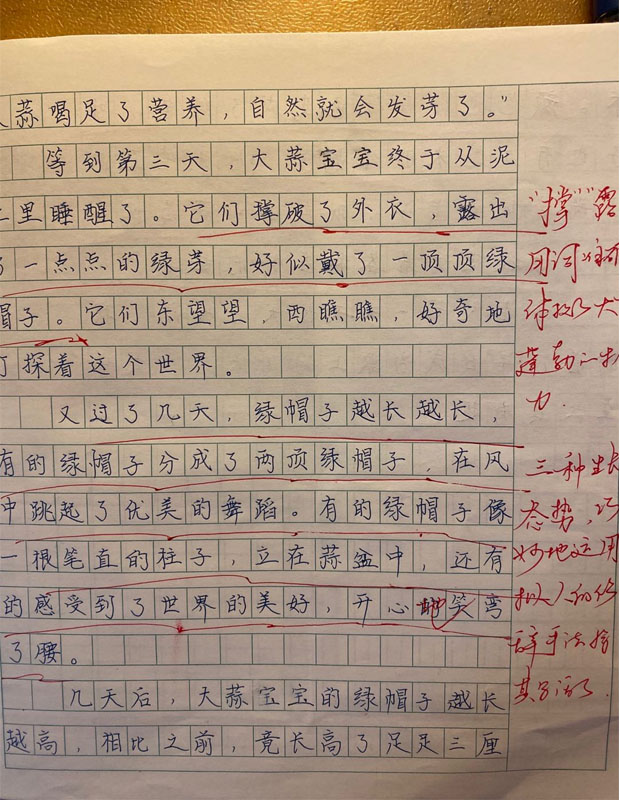 蒜喝足了营养，自然就会发芽了。”
等到第三天，大蒜宝宝终于从泥
里睡醒了。它们撑破了外衣，露出
了一点点的绿芽，好似戴了一顶顶绿
帽子。它们东望望，西瞧瞧，好奇地
打探着这个世界。
又过了几天，绿帽子越长越长，
有的绿帽子分成了两顶绿帽子，在风
中跳起了优美的舞蹈。有的绿帽子像
一根笔直的柱子，立在蒜盆中，还有
的感受到了世界的美好，开心地笑弯
了腰。
几天后，大蒜宝宝的绿帽子越长
越高，相比之前，竟长高了足足三厘
“撑”“露”
用词准确
体现了大
蓬勃的
力.
三种生长
态势，巧
妙地运用
拟人的修
辞手法
其